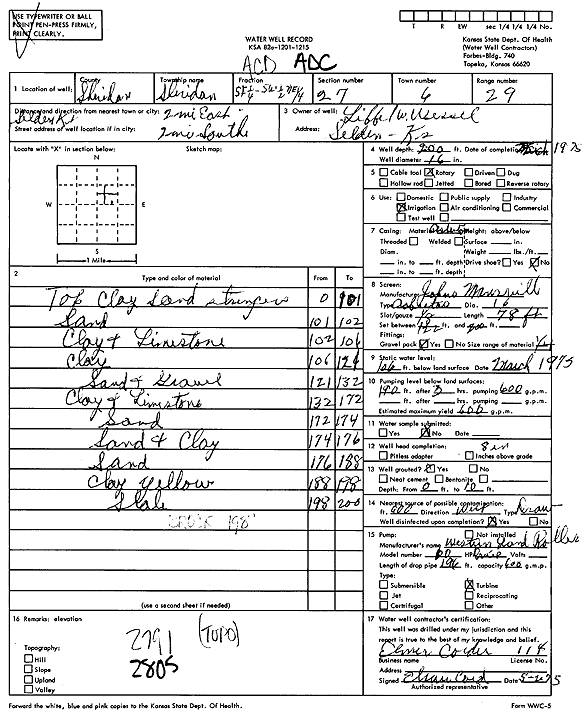 USE TYPEWRITER OR BALL
POINT PEN-PRESS FIRMLY,
PRINT CLEARLY.
WATER WELL RECORD
KSA 82a-1201-1215
T R EW sec 1/4 1/4 1/4 No.
Kansas State Dept. Of Health
(Water Well Contractors)
Forbes-Bldg. 740
Topeka, Kansas 66620
ACD ADC
1 Location of well: County Sheridan Township name Sheridan Fraction Section number 27 Town number 6 Range number 29
Distance and direction from nearest town or city: 2 mi East
Selden Ks
Street address of well location if in city: 2 mi South
3 Owner of well:
Address: Selden - Ks
Locate with "X" in section below: Sketch map:
N
W E
S
1 Mile
4 Well depth: 200 ft. Date of completion March 1975
Well diameter 16 in.
5 Cable tool Rotary Driven Dug
Hollow rod Jetted Bored Reverse rotary
6 Use: Domestic Public supply Industry
Irrigation Air conditioning Commercial
Test well
7 Casing: Material Height: above/below
Threaded Welded Surface in.
Diam. Weight lbs./ft.
in. to ft. depth Drive shoe? Yes No
in. to ft. depth
2 Type and color of material From To
Top Clay Sand stringers 0 101
Sand 101 102
Clay & Limestone 102 106
Clay 106 121
Sand & Gravel 121 132
Clay & Limestone 132 172
Sand 172 174
Sand & Clay 174 176
Sand 176 188
Clay Yellow 188 198
Shale 198 200
198'
(use a second sheet if needed)
8 Screen:
Manufacturer Johns Mansvill
Type Dia. 16
Slot/gauze 1/8 Length 78 ft
Set between ft. and 200 ft.
Fittings:
Gravel pack Yes No Size range of material
9 Static water level:
106 ft. below land surface Date March 1975
10 Pumping level below land surfaces:
190 ft. after 3 hrs. pumping 600 g.p.m.
ft. after hrs. pumping g.p.m.
Estimated maximum yield 600 g.p.m.
11 Water sample submitted:
Yes No Date
12 Well head completion: 8 in
Pitless adapter Inches above grade
13 Well grouted? Yes No
Neat cement Bentonite
Depth: From 0 ft. to 10 ft.
14 Nearest source of possible contamination:
ft. Direction West Type Draw
Well disinfected upon completion? Yes No
15 Pump: Not installed
Manufacturer's name Western Land Roller
Model number HP Volts
Length of drop pipe 196 ft. capacity 600 g.m.p.
Type:
Submersible Turbine
Jet Reciprocating
Centrifugal Other
16 Remarks: elevation
2791 (TOPO)
2805
Topography:
Hill
Slope
Upland
Valley
17 Water well contractor's certification:
This well was drilled under my jurisdiction and this
report is true to the best of my knowledge and belief.
Business name License No.
Address
Signed Date
Authorized representative
Forward the white, blue and pink copies to the Kansas State Dept. Of Health. Form WWC-5